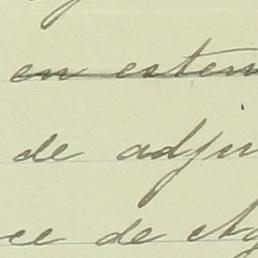 en esten
de adju
ce de Ag